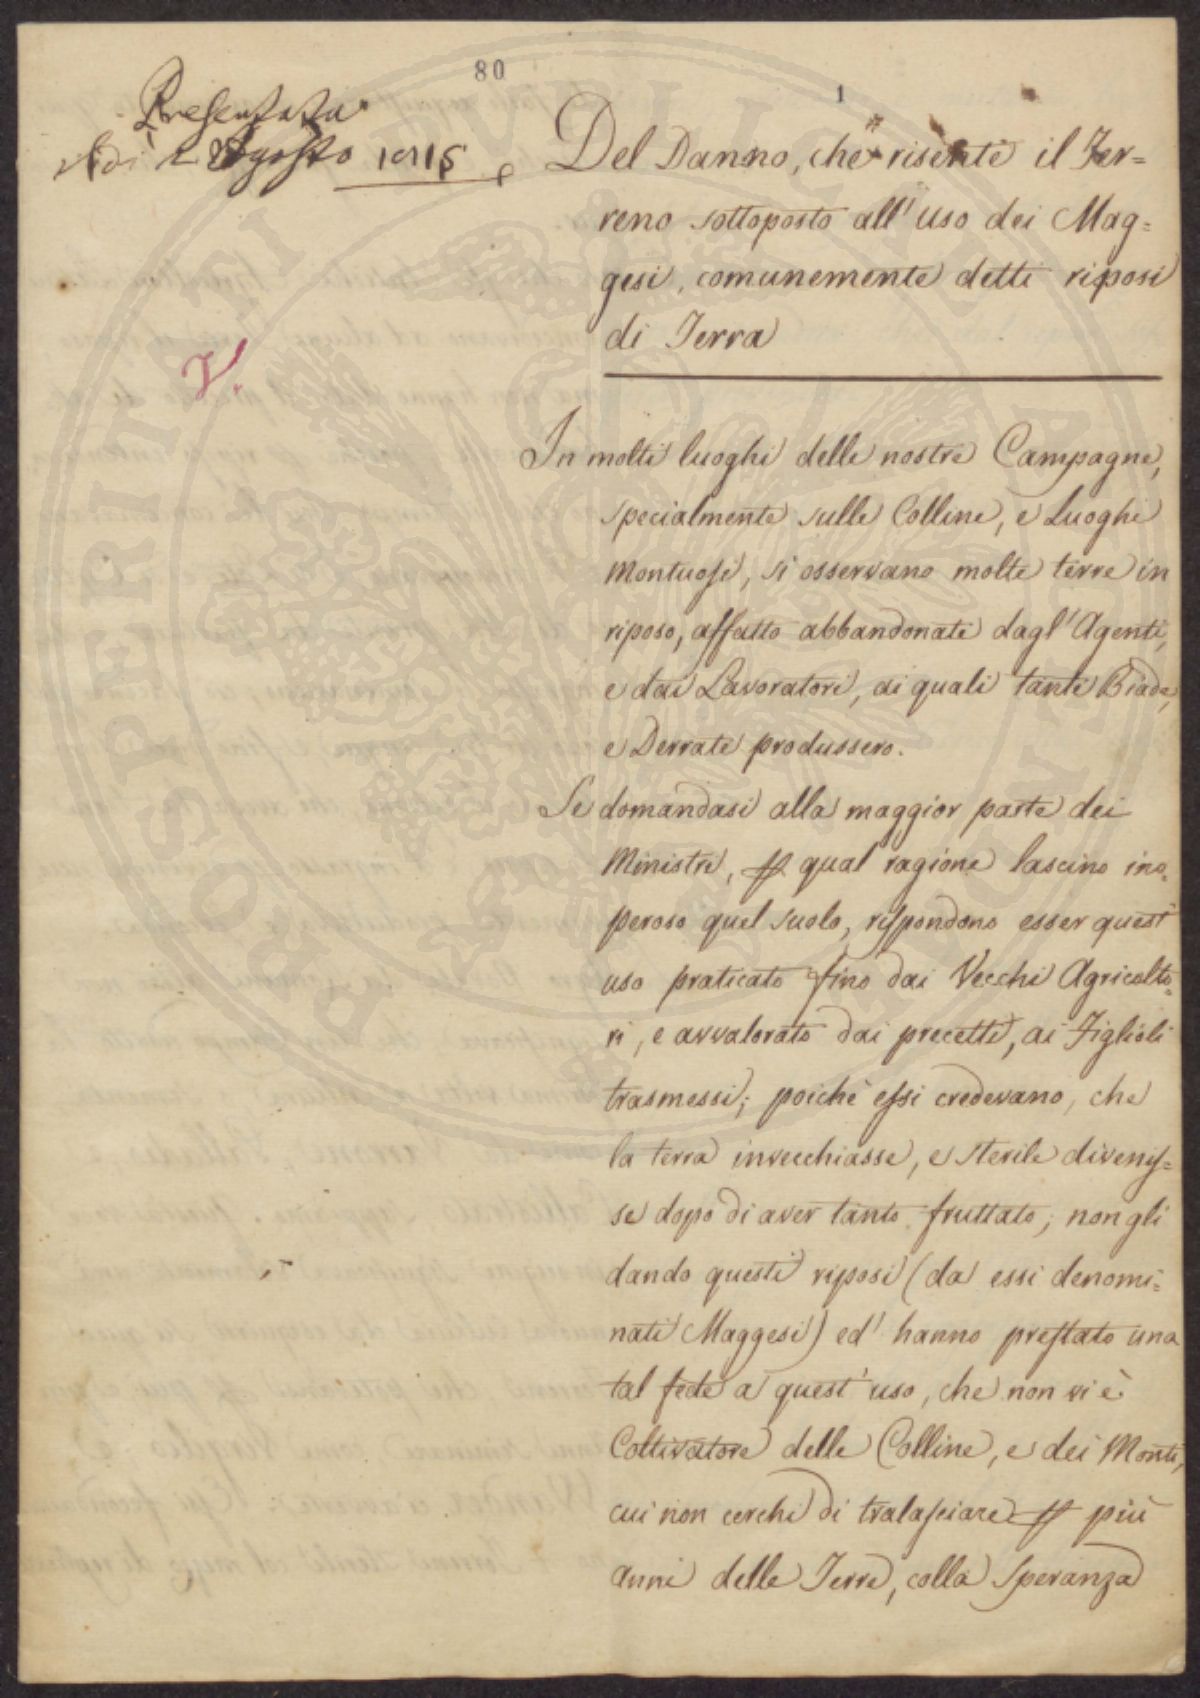 80
1
Presentata
Adi 2 Agosto 1815
Del Danno, che risente il Ter=
reno sottoposto all'uso dei Mag=
gesi, comunemente detti riposi
di Terra
V.
In molti luoghi delle nostre Campagne,
specialmente sulle Colline, e Luoghi
Montuosi, si osservano molte terre in
riposo, affatto abbandonate dagl'Agenti,
e dai Lavoratori, ai quali tante Biade,
e Derrate produssero.
Se domandasi alla maggior parte dei
Ministri, qual ragione lascino ino=
peroso quel suolo, rispondono esser quest'
uso praticato fino dai Vecchi Agricolto=
ri, e avvalorato dai precetti, ai Figlioli
trasmessi; poichè essi credevano, che
la terra invecchiasse, e sterile divenis=
se dopo di aver tanto fruttato, non gli
dando questi riposi (da essi denomi=
nati Maggesi) ed' hanno prestato una
tal fede a quest'uso, che non vi è
Coltivatore delle Colline, e dei Monti,
cui non cerchi di tralasciare più
anni delle Terre, colla Speranza
PROSPERITATI PVBLICAE AVGENDAE